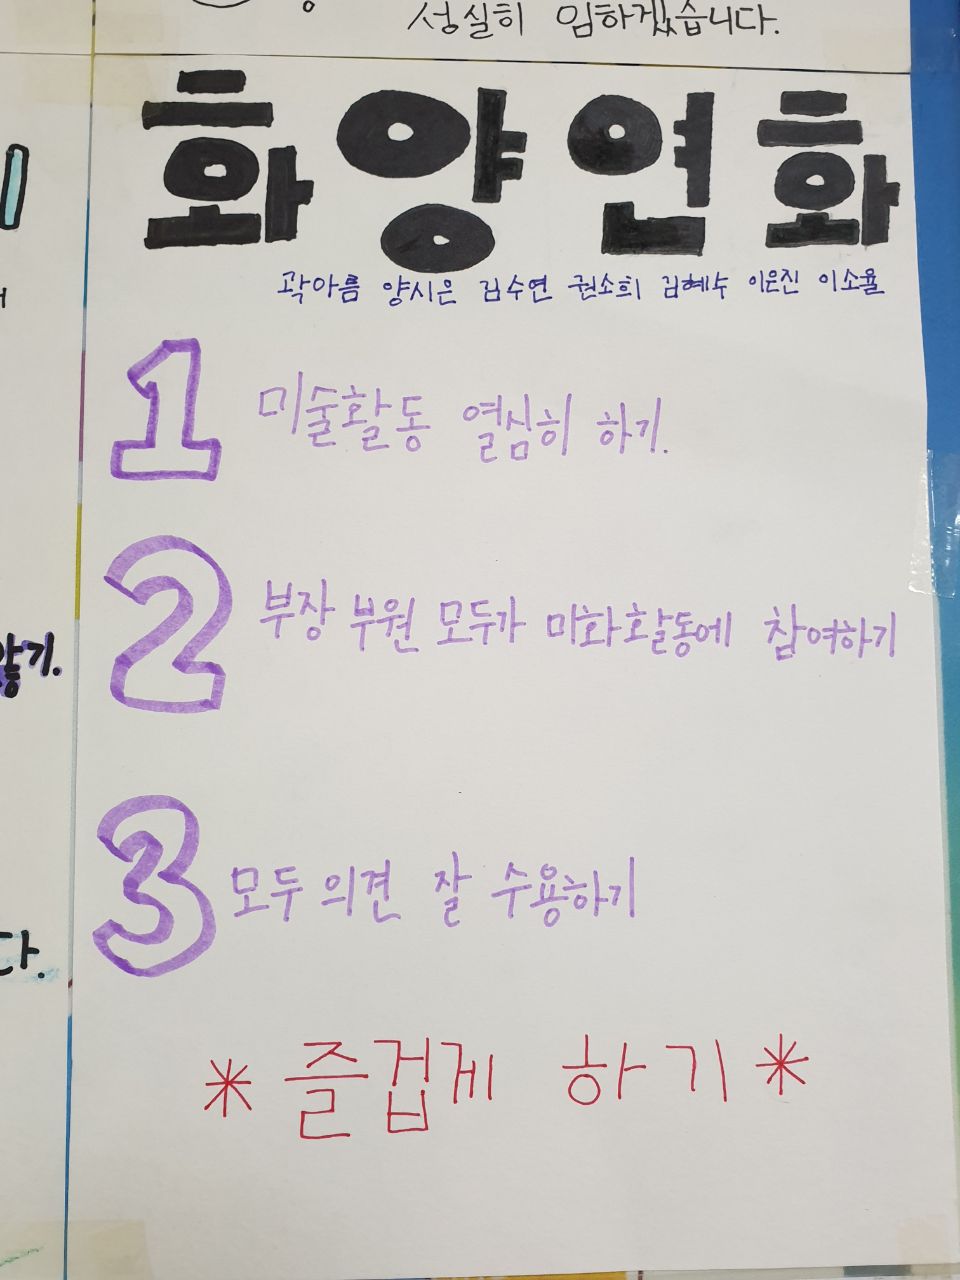 성실히 임하겠습니다.
화양연화
곽아름 양시은 김수연 권소희 김혜수 이은진 이소율
1 미술활동 열심히 하기.
2 부장 부원 모두가 미화활동에 참여하기
3 모두 의견 잘 수용하기
* 즐겁게 하기 *
않기.
다.